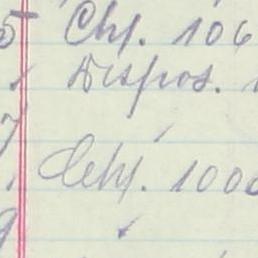 5 Chf. 106
Dispos.
7
Lehf. 1000
9